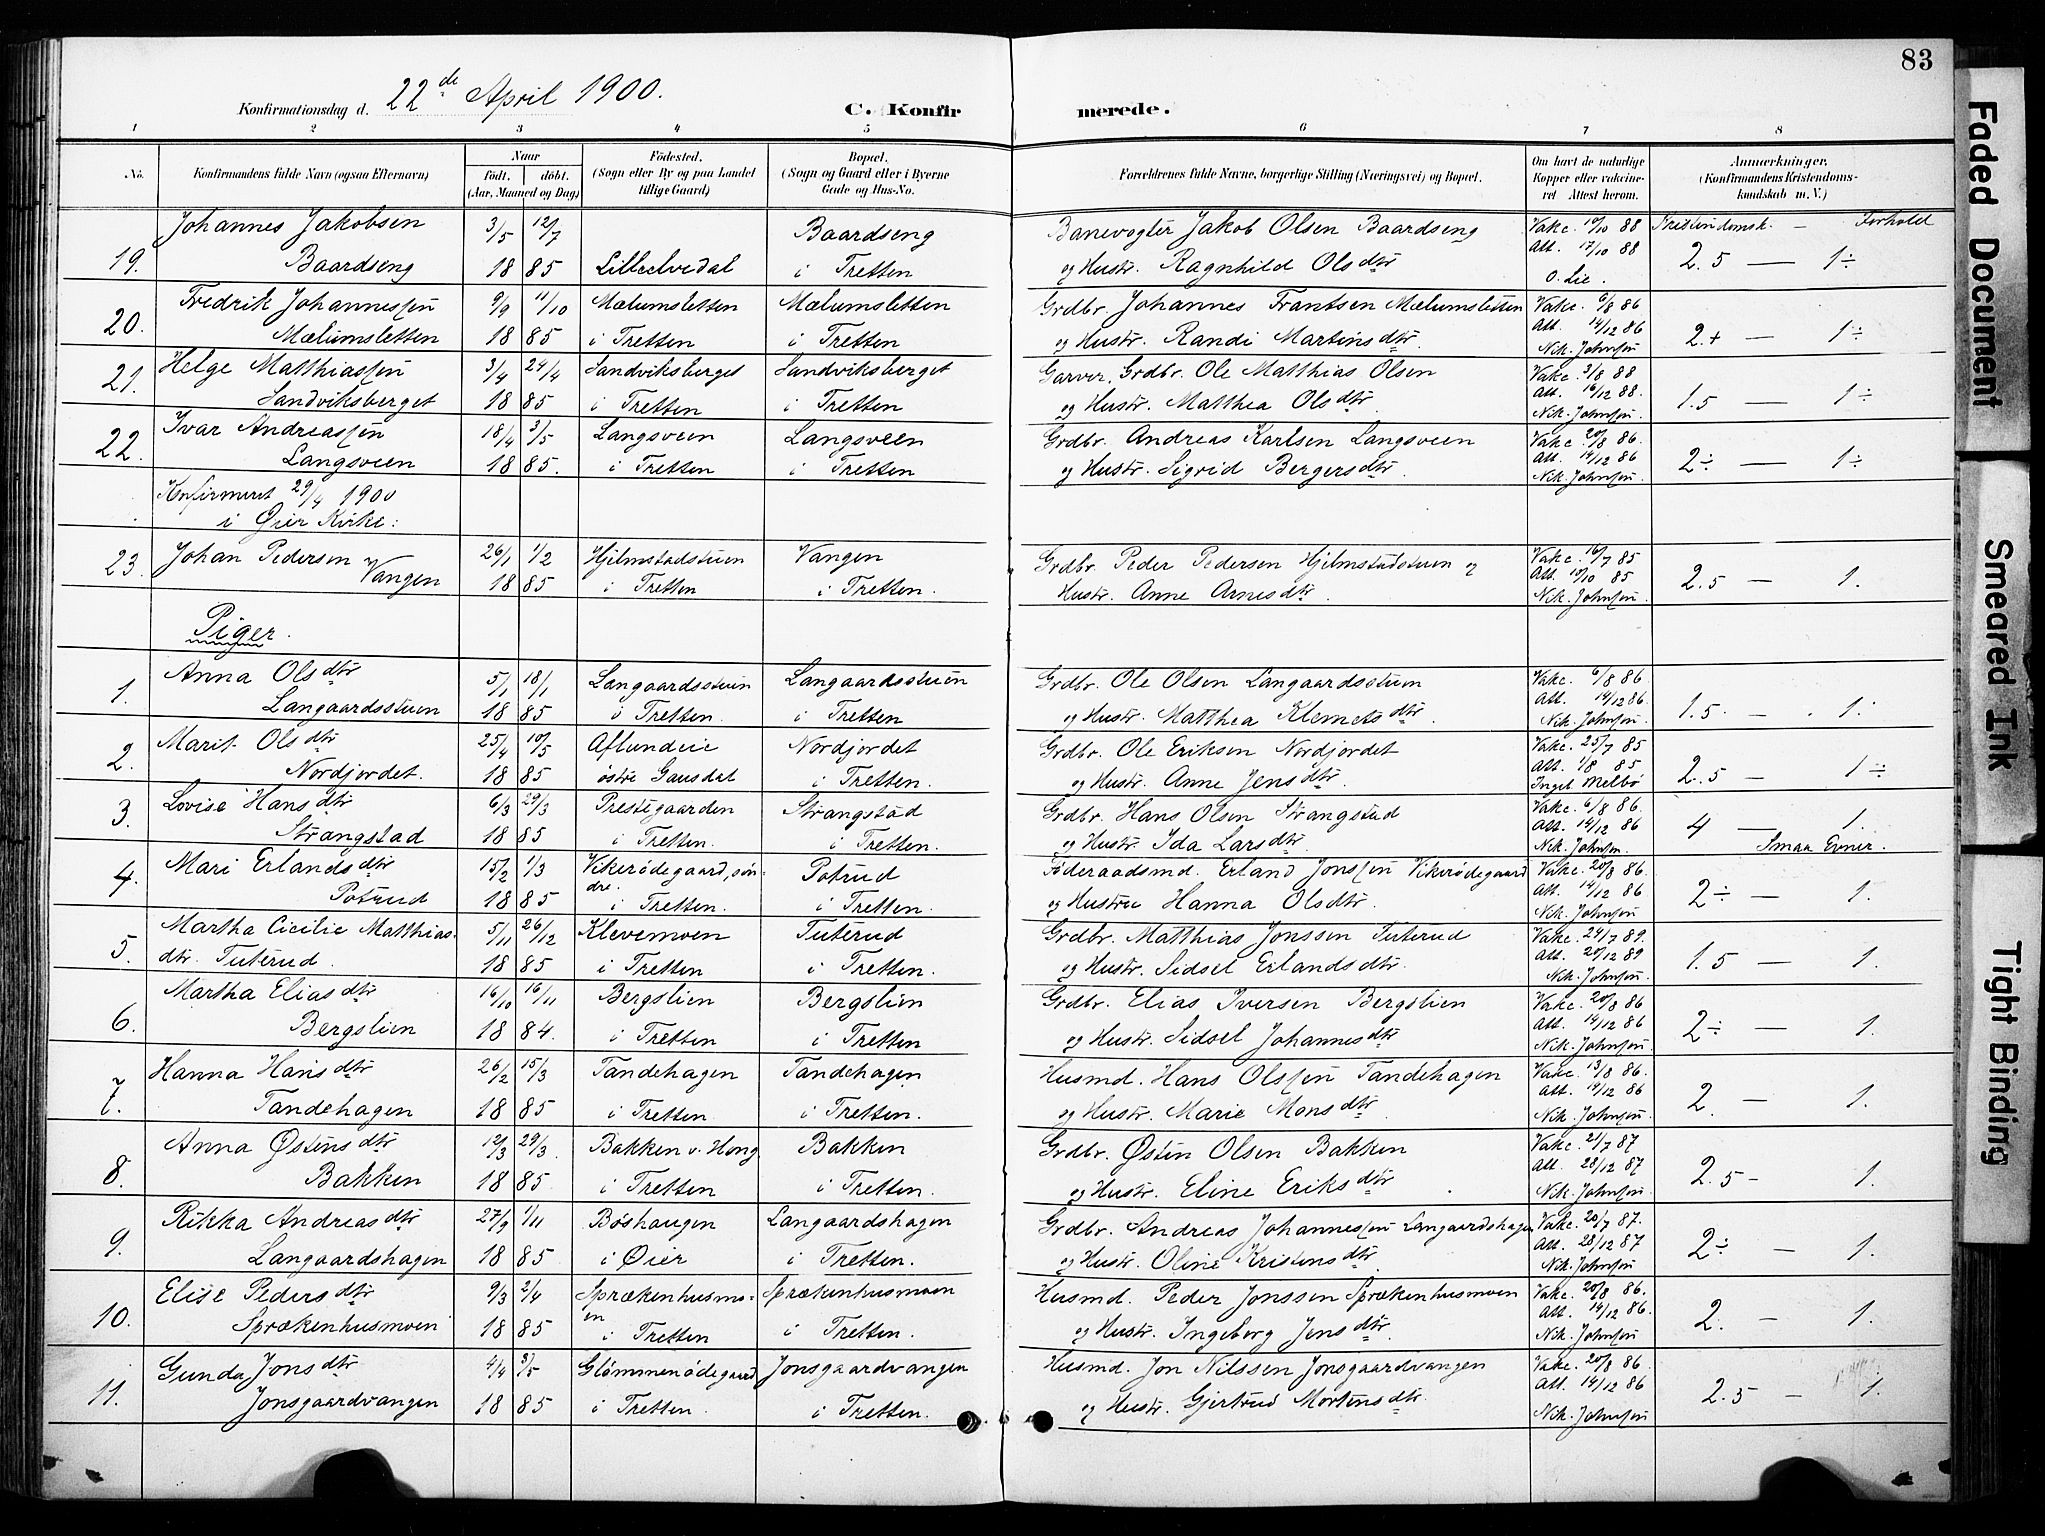 83
Konfirmationsdag d. 22de April 1900.
C. Konfirmerede.
1 2 3 4 5 6 7 8
No.
Konfirmandens fulde Navn (ogsaa Efternavn)
Naar
födt. döbt.
(Aar, Maaned og Dag)
Födested.
(Sogn eller By og paa Landet
tillige Gaard)
Bopæl.
(Sogn og Gaard eller i Byerne
Gade og Hus-No.
Forældrenes fulde Navne, borgerlige Stilling (Næringsvei) og Bopæl.
Om havt de naturlige
Kopper eller vaccine-
ret Attest herom.
Anmærkninger.
(Konfirmandens Kristendoms-
kundskab m. V.)
Johannes Jakobsen 3/5 12/7 Baardseng Banevogter Jakob Olsen Baardseng Vakc. 10/10 88 Kristendomsk. — Forhold
19. Baardseng 18 85 Lilleelvedal i Tretten og Hustr. Ragnhild Olsdtr Att. 17/10 88 2.5 — 1÷
O. Lie.
Fredrik Johannessen 9/9 11/10 Mælumsletten Mælumsletten Grdbr. Johannes Frantsen Mælumsletten Vakc. 6/8 86
20. Mælumsletten 18 85 i Tretten i Tretten og Hustr. Randi Martinsdtr. Att. 14/12 86 2+ — 1÷
Nik. Johnsen
Helge Matthiassen 3/4 24/4 Sandviksberget Sandviksberget Garver, Grdbr. Ole Matthias Olsen Vakc. 3/8 88
21. Sandviksberget 18 85 i Tretten i Tretten og Hustr. Matthea Olsdtr. Att. 16/12 88. 1.5 — 1÷
Nik. Johnsen.
Ivar Andreassen 18/4 3/5 Langsveen Langsveen Grdbr. Andreas Karlsen Langsveen Vakc. 20/8 86.
22. Langsveen 18 85. i Tretten i Tretten og Hustr. Sigrid Bergersdtr. Att. 14/12 86 2÷ — 1÷
Nik. Johnsen.
Konfirmeret 29/4 1900
i Øier Kirke:
Johan Pedersen 26/1 1/2 Hjelmstadstuen Vangen Grdbr. Peder Pedersen Hjelmstadstuen og Vakc. 16/7 85
23. Vangen 18 85 i Tretten i Tretten. Hustr. Anne Arnesdtr. Att. 10/10 85 2.5 — 1.
Nik. Johnsen.
Piger.
Anna Olsdtr 5/1 18/1 Langaardsstuen Langaardsstuen Grdbr. Ole Olsen Langaardsstuen Vakc. 6/8 86.
1. Langaardsstuen 18 85 i Tretten. i Tretten og Hustr. Matthea Klemetsdtr. Att. 14/12 86. 1.5. — 1.
Nik. Johnsen
Marit Olsdtr 25/4 10/5 Aflundeie Nordjordet Grdbr. Ole Eriksen Nordjordet Vakc. 25/7 85
2. Nordjordet. 18 85 østre Gausdal i Tretten. og Hustr. Anne Jensdtr. Att. 1/8 85 2.5 — 1÷
Inget Melbö
Lovise Hansdtr 6/3 29/3 Prestegaarden Strangstad Grdbr. Hans Olsen Strangstad Vakc. 6/8 86.
3. Strangstad 18 85 i Tretten. i Tretten. og Hustr. Ida Larsdtr. Att. 14/12 86 4 — 1.
Nik. Johnsen. Smaa Evner.
Mari Erlandsdtr 15/2 1/3 Vikerødegaard, søn- Potrud Føderaadsmd. Erland Jonssen Vikerødegaard Vakc. 20/8 86.
dre.
4. Potrud 18 85 i Tretten. i Tretten. og Hustru Hanna Olsdtr. Att. 14/12 86 2÷ — 1.
Nik. Johnsen
Martha Cicilie Matthias- 5/11 26/12 Klevemoen Tuterud Grdbr. Matthias Jonssen Tuterud Vakc. 24/7 89.
5. dtr. Tuterud. 18 85 i Tretten i Tretten. og Hustr. Sidsel Erlandsdtr. Att. 20/12 89 1.5 — 1.
Nik. Johnsen
Martha Eliasdtr 16/10 16/11 Bergslien Bergslien Grdbr. Elias Iversen Bergslien Vakc. 20/8 86
6. Bergslien 18 84. i Tretten i Tretten og Hustr. Sidsel Johannesdtr Att. 14/12 86 2÷ — 1.
Nik. Johnsen.
Hanna Hansdtr 26/2 15/3 Tandehagen Tandehagen Husmd. Hans Olssen Tandehagen Vakc. 13/8 86.
7. Tandehagen 18 85 i Tretten i Tretten. og Hustr. Marie Monsdtr Att. 14/12 86 2. — 1.
Nik. Johnsen.
Anna Østensdtr 12/3 29/3. Bakken v. Hong Bakken Grdbr. Østen Olsen Bakken Vakc. 21/7 87
8. Bakken 18 85. i Tretten i Tretten. og Hustr. Eline Eriksdtr Att. 28/12 87 2.5 - 1.
Nik. Johnsen
Rikka Andreasdtr 27/9 1/11 Bøshaugen Langaardshagen Grdbr. Andreas Johannessen Langaardshagen Vakc. 20/7 87.
9. Langaardshagen 18 85. i Øier i Tretten. og Hustr. Oline Kristensdtr Att. 28/12 87 2÷ — 1.
Nik. Johnsen
Elise Pedersdtr 9/3 2/4 Sprækenhusmo- Sprækenhusmoen Husmd. Peder Jonssen Sprækenhusmoen Vakc. 20/8 86.
en
10. Sprækenhusmoen 18 85 i Tretten i Tretten. og Hustr. Ingeborg Jensdtr Att. 14/12 86. 2. — 1.
Nik. Johnsen
Gunda Jonsdtr 4/4 3/5 Glømmenødegaard Jonsgaardvangen Husmd. Jon Nilssen Jonsgaardvangen Vakc. 20/8 86.
11. Jonsgaardvangen 18 85 i Tretten. i Tretten. og Hustr. Gjertrud Mortensdtr. Att. 14/12 86 2.5 — 1.
Nik. Johnsen
Faded Document
Smeared Ink
Tight Binding